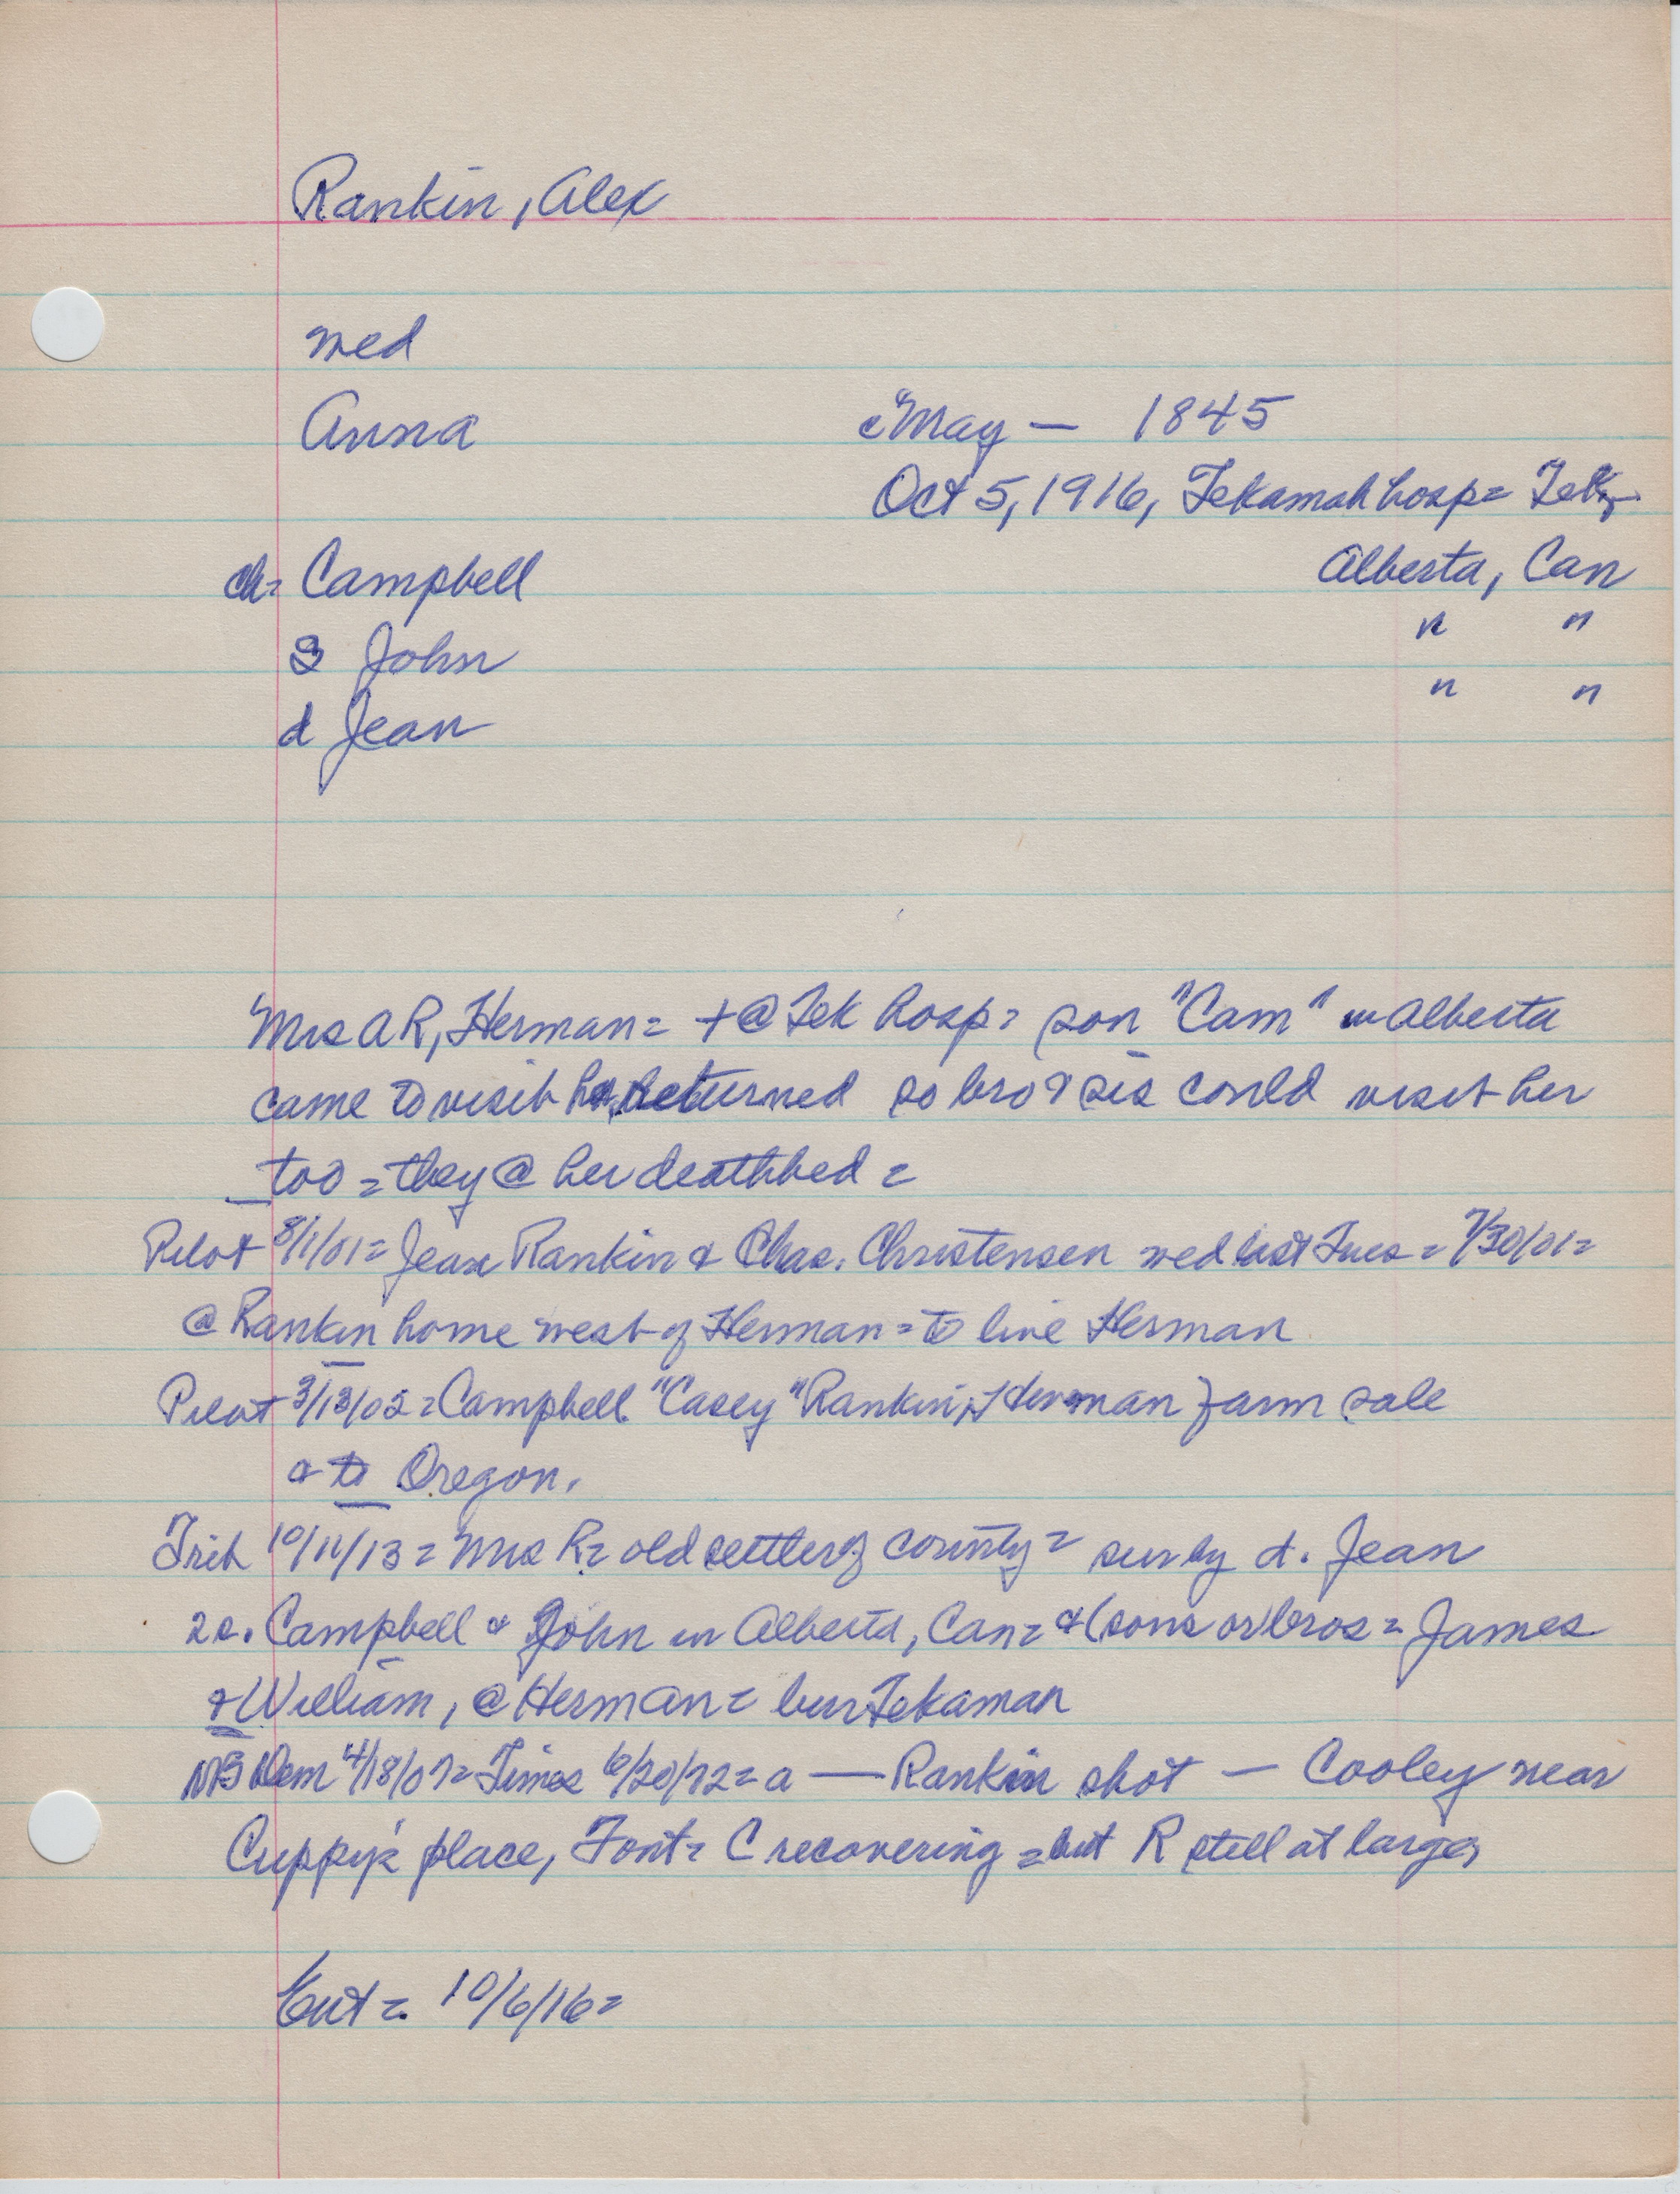 Rankin, Alex
wed
Anna May — 1845
Oct 5, 1916, Tekamah hosp = Tek
ch = Campbell Alberta, Can
s John " "
d Jean " "
Mrs A R, Herman = + @ Tek hosp = son "Cam" in Alberta
came to visit her, returned so bro & sis could visit her
too = they @ her deathbed =
Pilot 8/1/01 = Jean Rankin & Chas. Christensen wed last Tues = 7/30/01 =
@ Rankin home west of Herman = to live Herman
Pilot 3/13/02 = Campbell "Casey" Rankin, Herman farm sale
& to Oregon.
Trib 10/11/13 = Mrs R = old settler of county = sur by d. Jean
2 s. Campbell & John in Alberta, Can = & (sons or) bros = James
& William, @ Herman = bur Tekamah
Dem 4/18/07 = Times 6/20/72 = a — Rankin shot — Cooley near
Cuppy's place, Font = C recovering = but R still at large,
Ent = 10/6/16 =